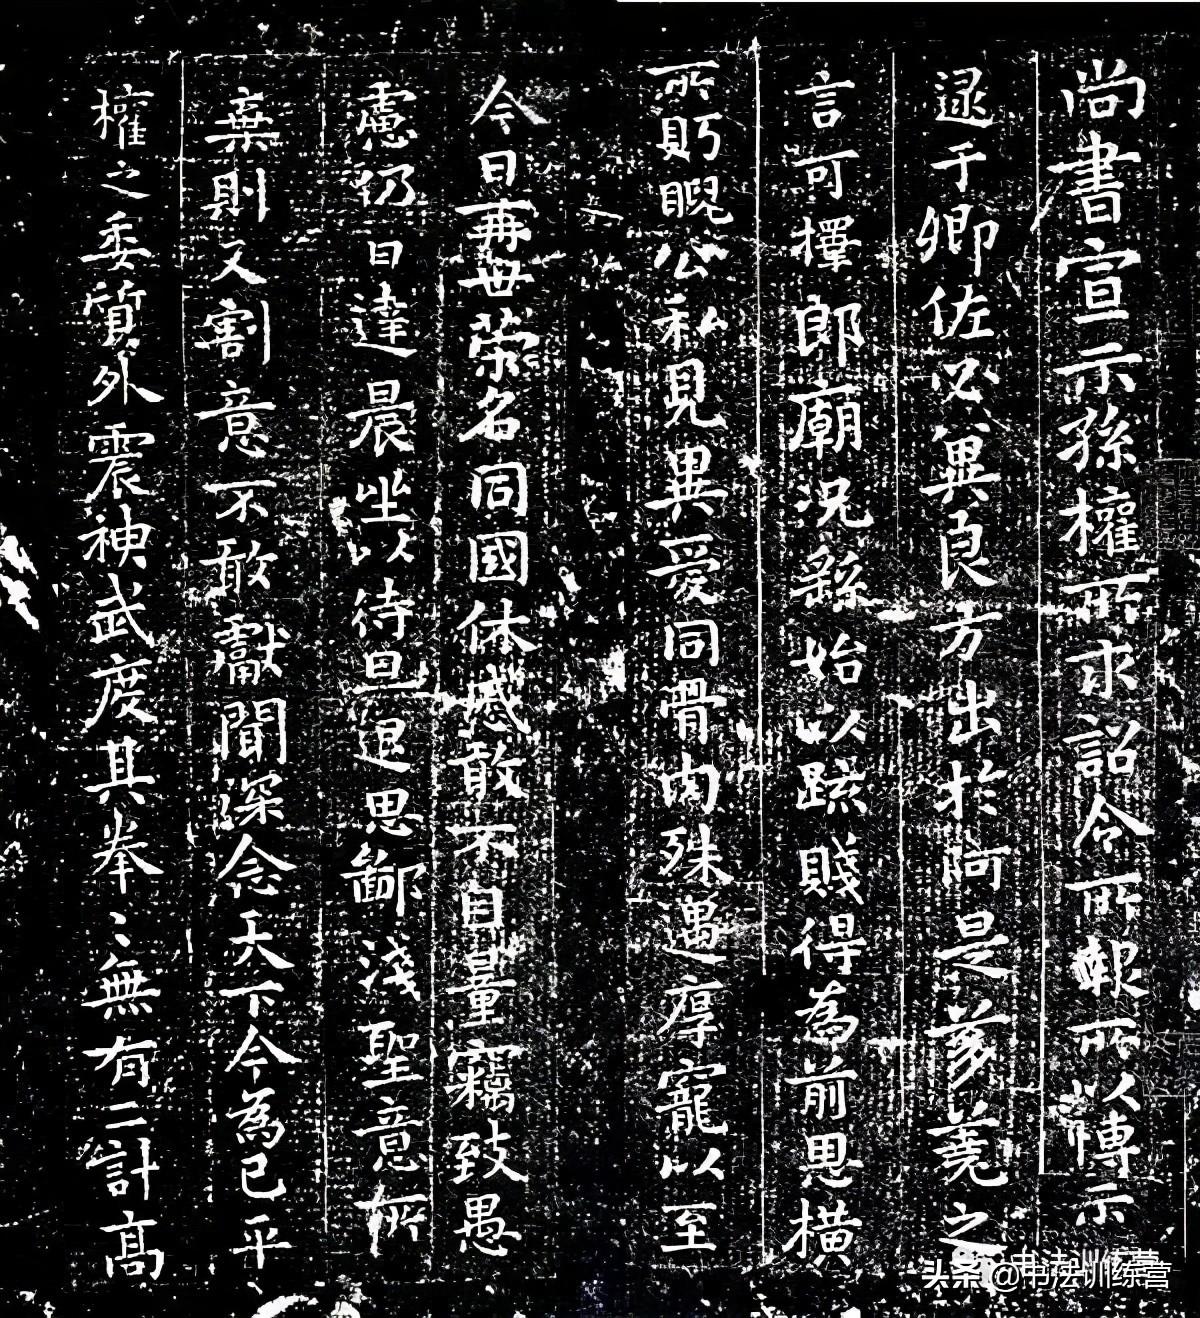 尚書宣示孫權所求詔令所報所以博示
逮于卿佐必冀良方出於阿是芻蕘之
言可擇郎廟況繇始以疏賤得為前恩橫
所盻睨公私見異愛同骨肉殊遇厚寵以至
今日再世榮名同國休慼敢不自量竊致愚
慮仍日達晨坐以待旦退思鄙淺聖意所
棄則又割意不敢獻聞深念天下今為已平
權之委質外震神武度其拳〻無有二計高
头条@书法训练营